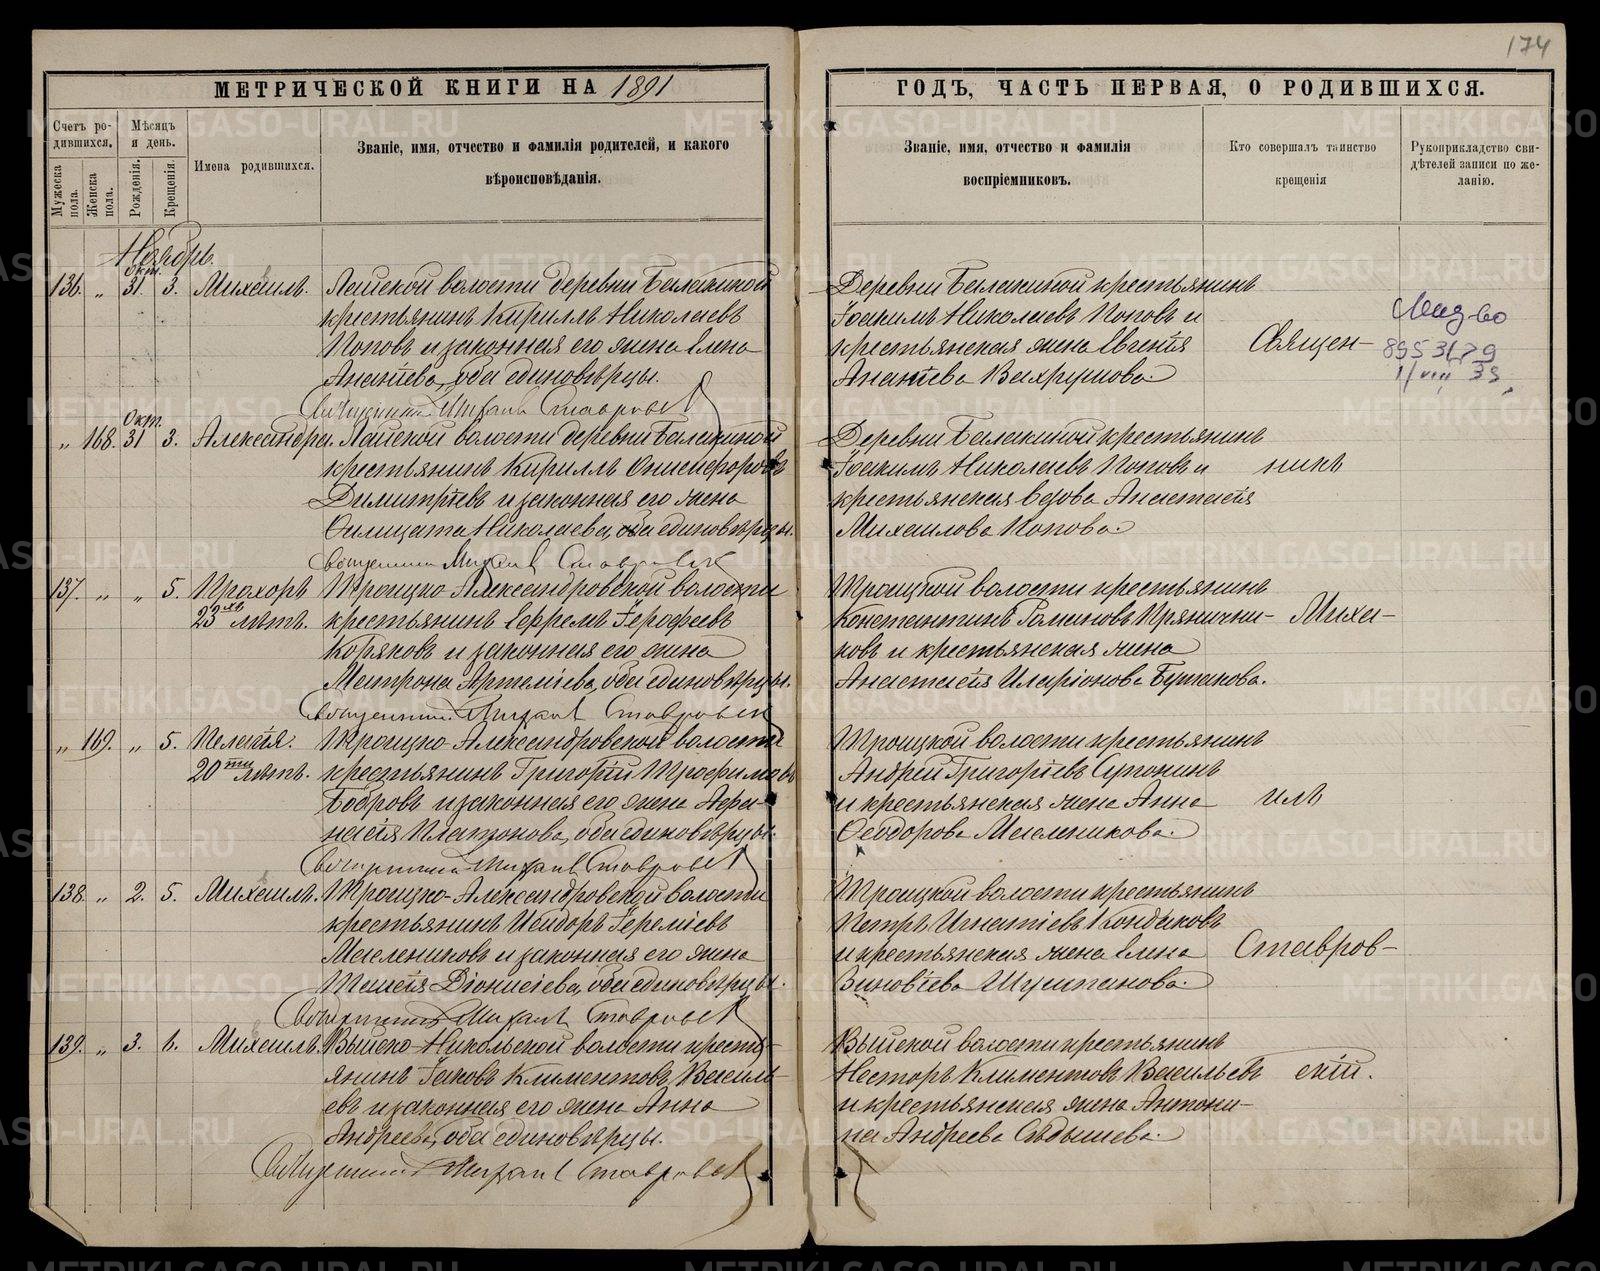 174
МЕТРИЧЕСКОЙ КНИГИ НА 1891
ГОДЪ, ЧАСТЬ ПЕРВАЯ, О РОДИВШИХСЯ.
Счетъ родившихся.
Мужеска пола.
Женска пола.
Мѣсяцъ и день.
Рожденія.
Крещенія.
Имена родившихся.
Званіе, имя, отчество и фамилія родителей, и какого
вѣроисповѣданія.
Званіе, имя, отчество и фамилія
воспріемниковъ.
Кто совершалъ таинство
крещенія
Рукоприкладство сви-
дѣтелей записи по же-
ланію.
Ноябрь.
Окт.
136. „ 31. 3. Михаилъ. Лайской волости деревни Балакиной
крестьянинъ Кириллъ Николаевъ
Поповъ и законная его жена Елена
Ананіева, оба единовѣрцы.
Священникъ Михаилъ Ставровскій
Деревни Балакиной крестьянинъ
Іоакимъ Николаевъ Поповъ и
крестьянская жена Евгенія
Ананіева Вахрушова.
Окт.
„ 168. 31 3. Александра. Лайской волости деревни Балакиной
крестьянинъ Кириллъ Онисифоровъ
Димитріевъ и законная его жена
Филицата Николаева, оба единовѣрцы.
Священникъ Михаилъ Ставровскій
Деревни Балакиной крестьянинъ
Іоакимъ Николаевъ Поповъ и
крестьянская вдова Анастасія
Михаилова Попова.
137. „ „ 5. Прохоръ Троицко-Александровской волости
23хъ лѣтъ. крестьянинъ Ефремъ Іерофеевъ
Коряковъ и законная его жена
Матрона Артеміева, оба единовѣрцы.
Священникъ Михаилъ Ставровскій
Троицкой волости крестьянинъ
Константинъ Романовъ Прянични-
ковъ и крестьянская жена
Анастасія Иларіонова Бутакова.
„ 169. „ 5. Пелагія. Троицко-Александровской волости
20ти лѣтъ. крестьянинъ Григорій Трофимовъ
Бобровъ и законная его жена Афа-
насія Платонова, оба единовѣрцы.
Священникъ Михаилъ Ставровскій
Троицкой волости крестьянинъ
Андрей Григоріевъ Супонинъ
и крестьянская жена Анна
Ѳеодорова Масленикова.
138. „ 2. 5. Михаилъ. Троицко-Александровской волости
крестьянинъ Исидоръ Іереміевъ
Маслениковъ и законная его жена
Таисія Діонисіева, оба единовѣрцы.
Священникъ Михаилъ Ставровскій
Троицкой волости крестьянинъ
Петръ Игнатіевъ Кондаковъ
и крестьянская жена Елена
Зиновіева Шумланова.
139. „ 3. 6. Михаилъ. Выйско-Никольской волости кресть-
янинъ Іаковъ Климентовъ Василь-
евъ и законная его жена Анна
Андреева, оба единовѣрцы.
Священникъ Михаилъ Ставровскій
Выйской волости крестьянинъ
Несторъ Климентовъ Васильевъ
и крестьянская жена Антони-
на Андреева Сѣдышева.
Священ-
никъ
Миха-
илъ
Ставров-
скій.
895 3179
METRIKI.GASO-URAL.RU